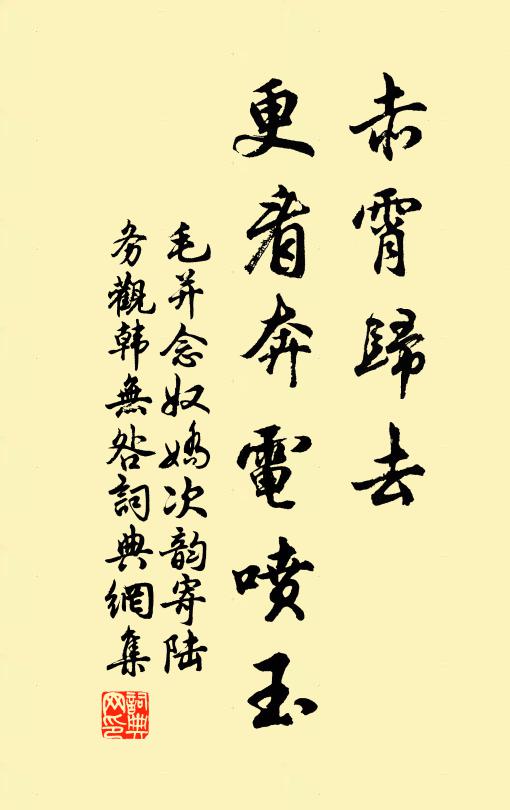 赤霄歸去
更看奔電噴玉
毛并念奴嬌次韵寄陆
务觀韩無咎詞典網集
詞典
网印